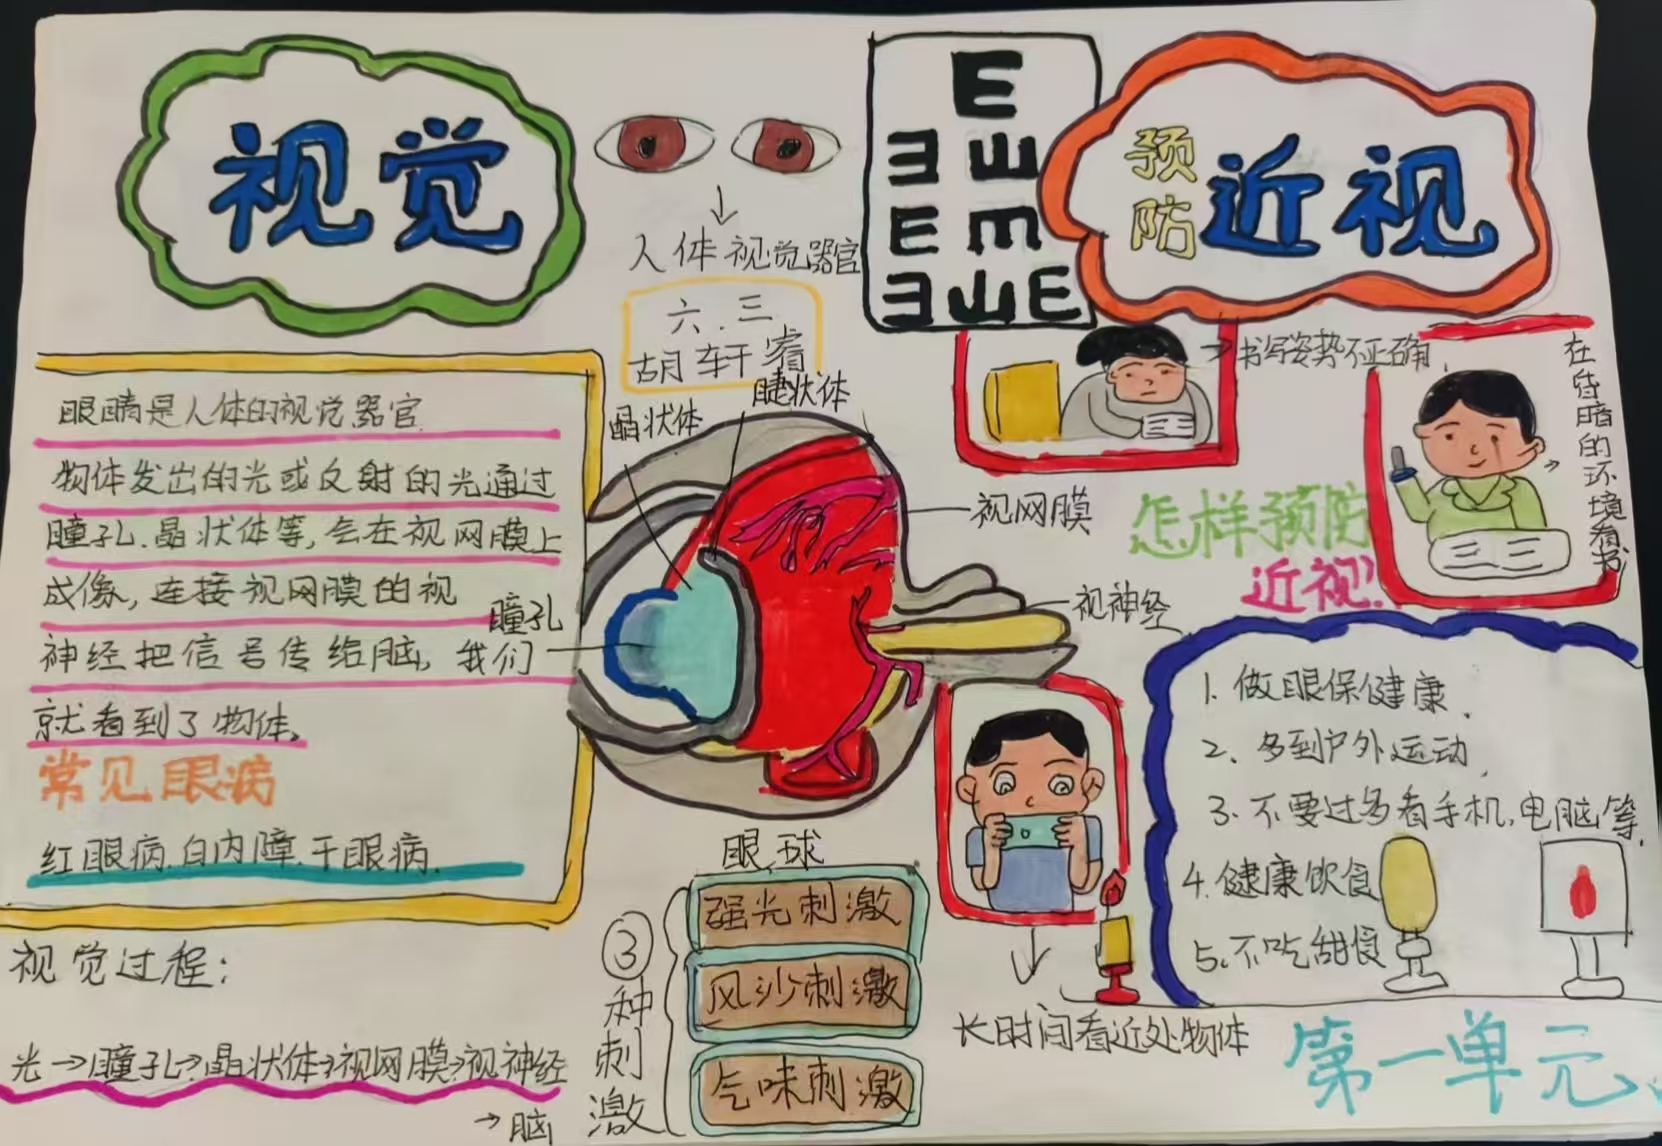 视觉
人体视觉器官
六.三
胡轩睿
E
E E
E E
E E E
预防
近视
眼睛是人体的视觉器官
物体发出的光或反射的光通过
瞳孔.晶状体等,会在视网膜上
成像,连接视网膜的视
神经把信号传给脑,我们
就看到了物体。
常见眼病
红眼病.白内障.干眼病.
视觉过程:
光→瞳孔→晶状体→视网膜→视神经
→脑
晶状体
睫状体
瞳孔
视网膜
视神经
眼球
③种刺激
强光刺激
风沙刺激
气味刺激
书写姿势不正确.
在昏暗的环境看书
长时间看近处物体
怎样预防
近视?
1.做眼保健康.
2.多到户外运动.
3.不要过多看手机,电脑等.
4.健康饮食
5.不吃甜食
第一单元